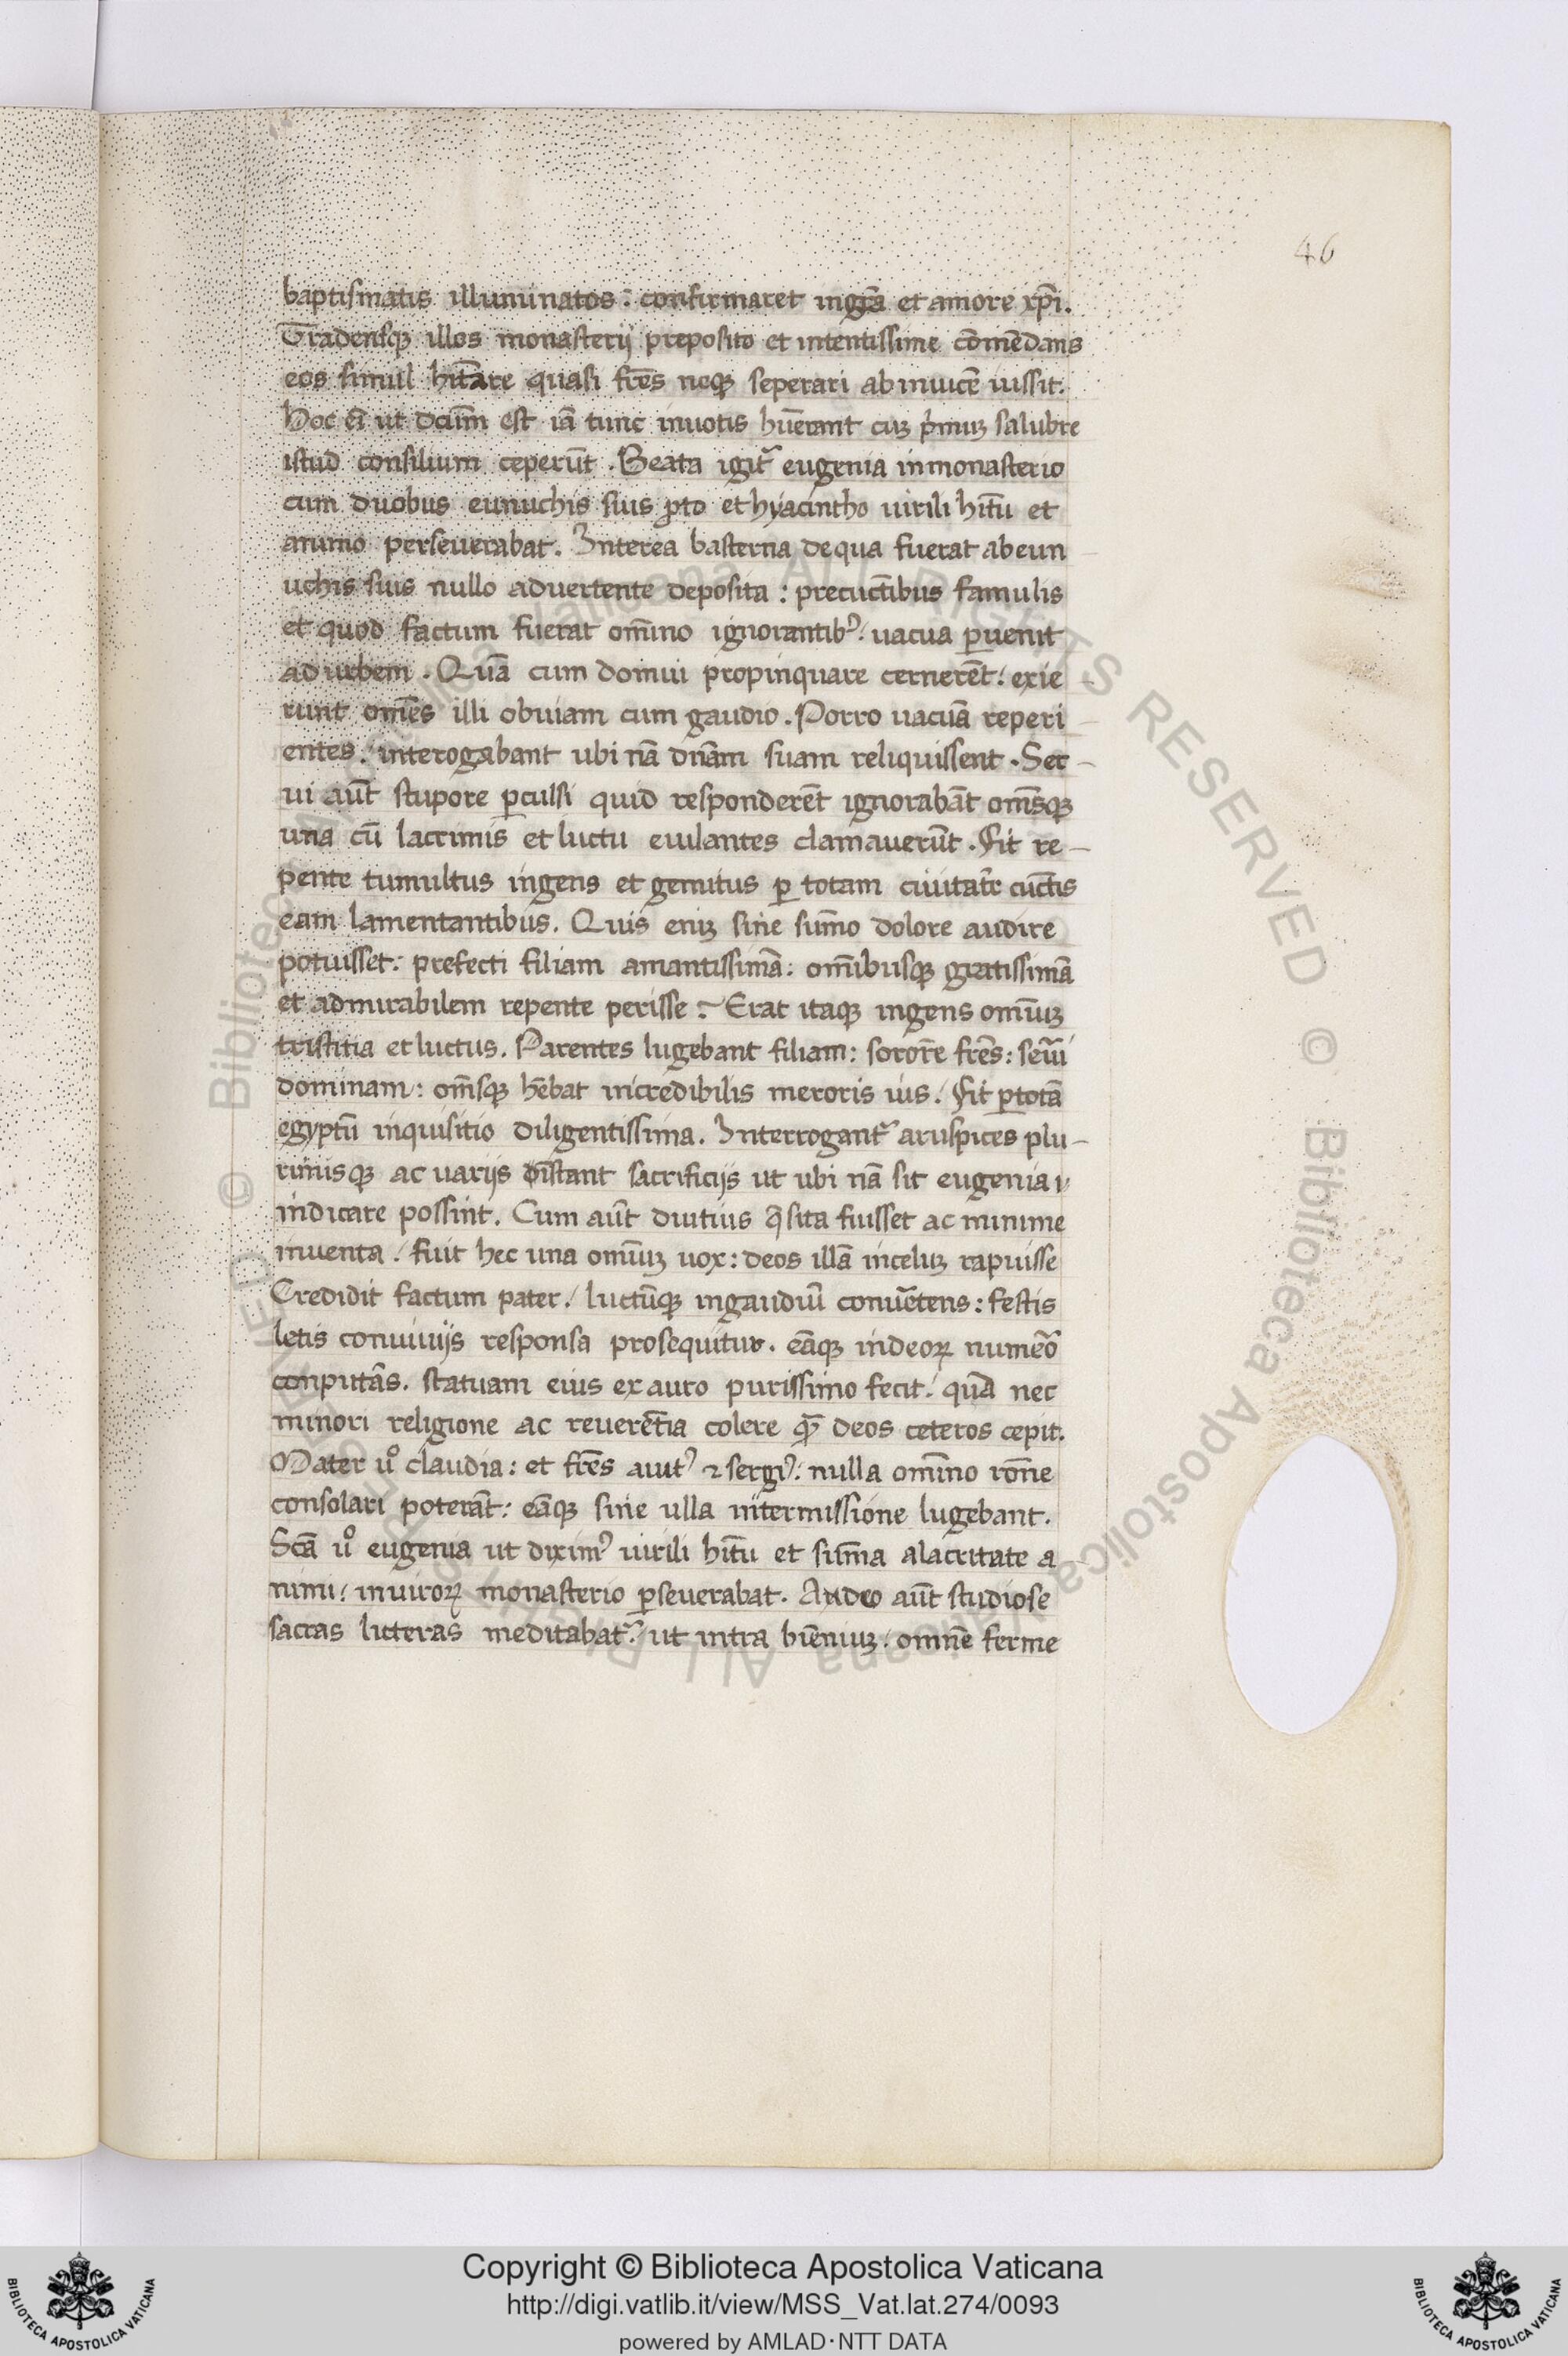 46
baptismatis illuminatos : confirmaret in gr̄a et amore xp̄i.
Tradensq; illos monasterij preposito et intentissime cōmēdans
eos simul hītare quasi fr̄es neq; seperari ab inuicē iussit.
Hoc .n. ut dc̄um est iā tunc in uotis hūerant cuȝ pͥmuȝ salubre
istud consilium ceperūt . Beata igit᷑ eugenia in monasterio
cum duobus eunuchis suis ꝓto et hyacintho uirili hītu et
animo perseuerabat. Interea basterna de qua fuerat ab eun
uchis suis nullo aduertente deposita : precūctibus famulis
et quod factum fuerat om̄ino ignorantibꝰ / uacua ꝑuenit
ad urbem . Quā cum domui propinquare cernerēt / exie
runt om̄es illi obuiam cum gaudio . Porro uacuā reperi
entes / interogabant ubi nā dn̄am suam reliquissent . Ser
ui aūt stupore ꝑculsi quid responderēt ignorabāt om̄sq;
una cū lacrimis et luctu eiulantes clamauerūt . Fit re
pente tumultus ingens et gemitus ꝑ totam ciuitatē cūctis
eam lamentantibus. Quis eniȝ sine sum̄o dolore audire
potuisset : prefecti filiam amantissimā : om̄ibusq; gratissimā
et admirabilem repente perisse ? Erat itaq; ingens omīuȝ
tristitia et luctus. Parentes lugebant filiam : sororē fr̄es : seru̅i
dominam : om̄sq; hēbat incredibilis meroris uis. Fit ꝑ totā
egyptū inquisitio diligentissima. Interrogant᷑ aruspices plu
rimisq; ac uarijs distant sacrificijs ut ubi nā sit eugenia
indicare possint. Cum aūt diutius q̄sita fuisset ac minime
inuenta / fuit hec una omīuȝ uox : deos illā in celuȝ rapuisse
Credidit factum pater / luctūq; in gaudiū conuētens : festis
letis conuiuijs responsa prosequitur. eāq; in deoꝝ numēo
conputās. statuam eius ex auro purissimo fecit / quā nec
minori religione ac reuerētia colere qᷓ deos ceteros cepit.
Mater uͦ claudia : et fr̄es auitꝰ ⁊ sergiꝰ : nulla om̄ino rōne
consolari poterāt : eāq; sine ulla intermissione lugebant.
Sc̄a uͦ eugenia ut diximꝰ uirili hītu et sum̄a alacritate a
nimi / in uiroꝝ monasterio ꝑseuerabat. Adeo aūt studiose
sacras litteras meditabat᷑ / ut intra biēniuȝ / omnē ferme
Copyright © Biblioteca Apostolica Vaticana
http://digi.vatlib.it/view/MSS_Vat.lat.274/0093
powered by AMLAD·NTT DATA